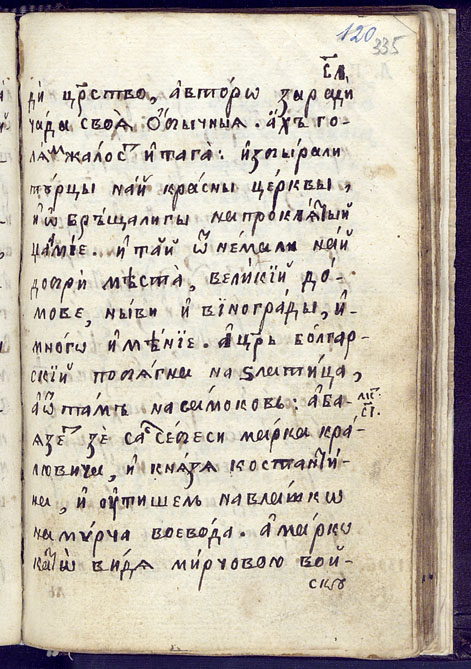 120
335
ди црство, а вторѡ заради
чада своѧ ѻбычныѧ. ахъ го-
лѧм жалост и тага: избырали
турцы най красны церквы,
и ѡбръщали гы на проклѧтый
цамїе. и тай ѡнемали най
добри мѣста, великїй до-
мове, нывы и виногради, и
много имѣнїе. а црь болгар-
скїй побѧгна на ѕлатица,
а ѿтамъ на самоковь: а ба-
ѧзет зе са себеси марка кра-
лювича, и кнѧзѧ костанти-
на, и ѹтишель на влашкѡ
на мурча воевода. а марко
катѡ видѧ мирчовою вой-
скѹ